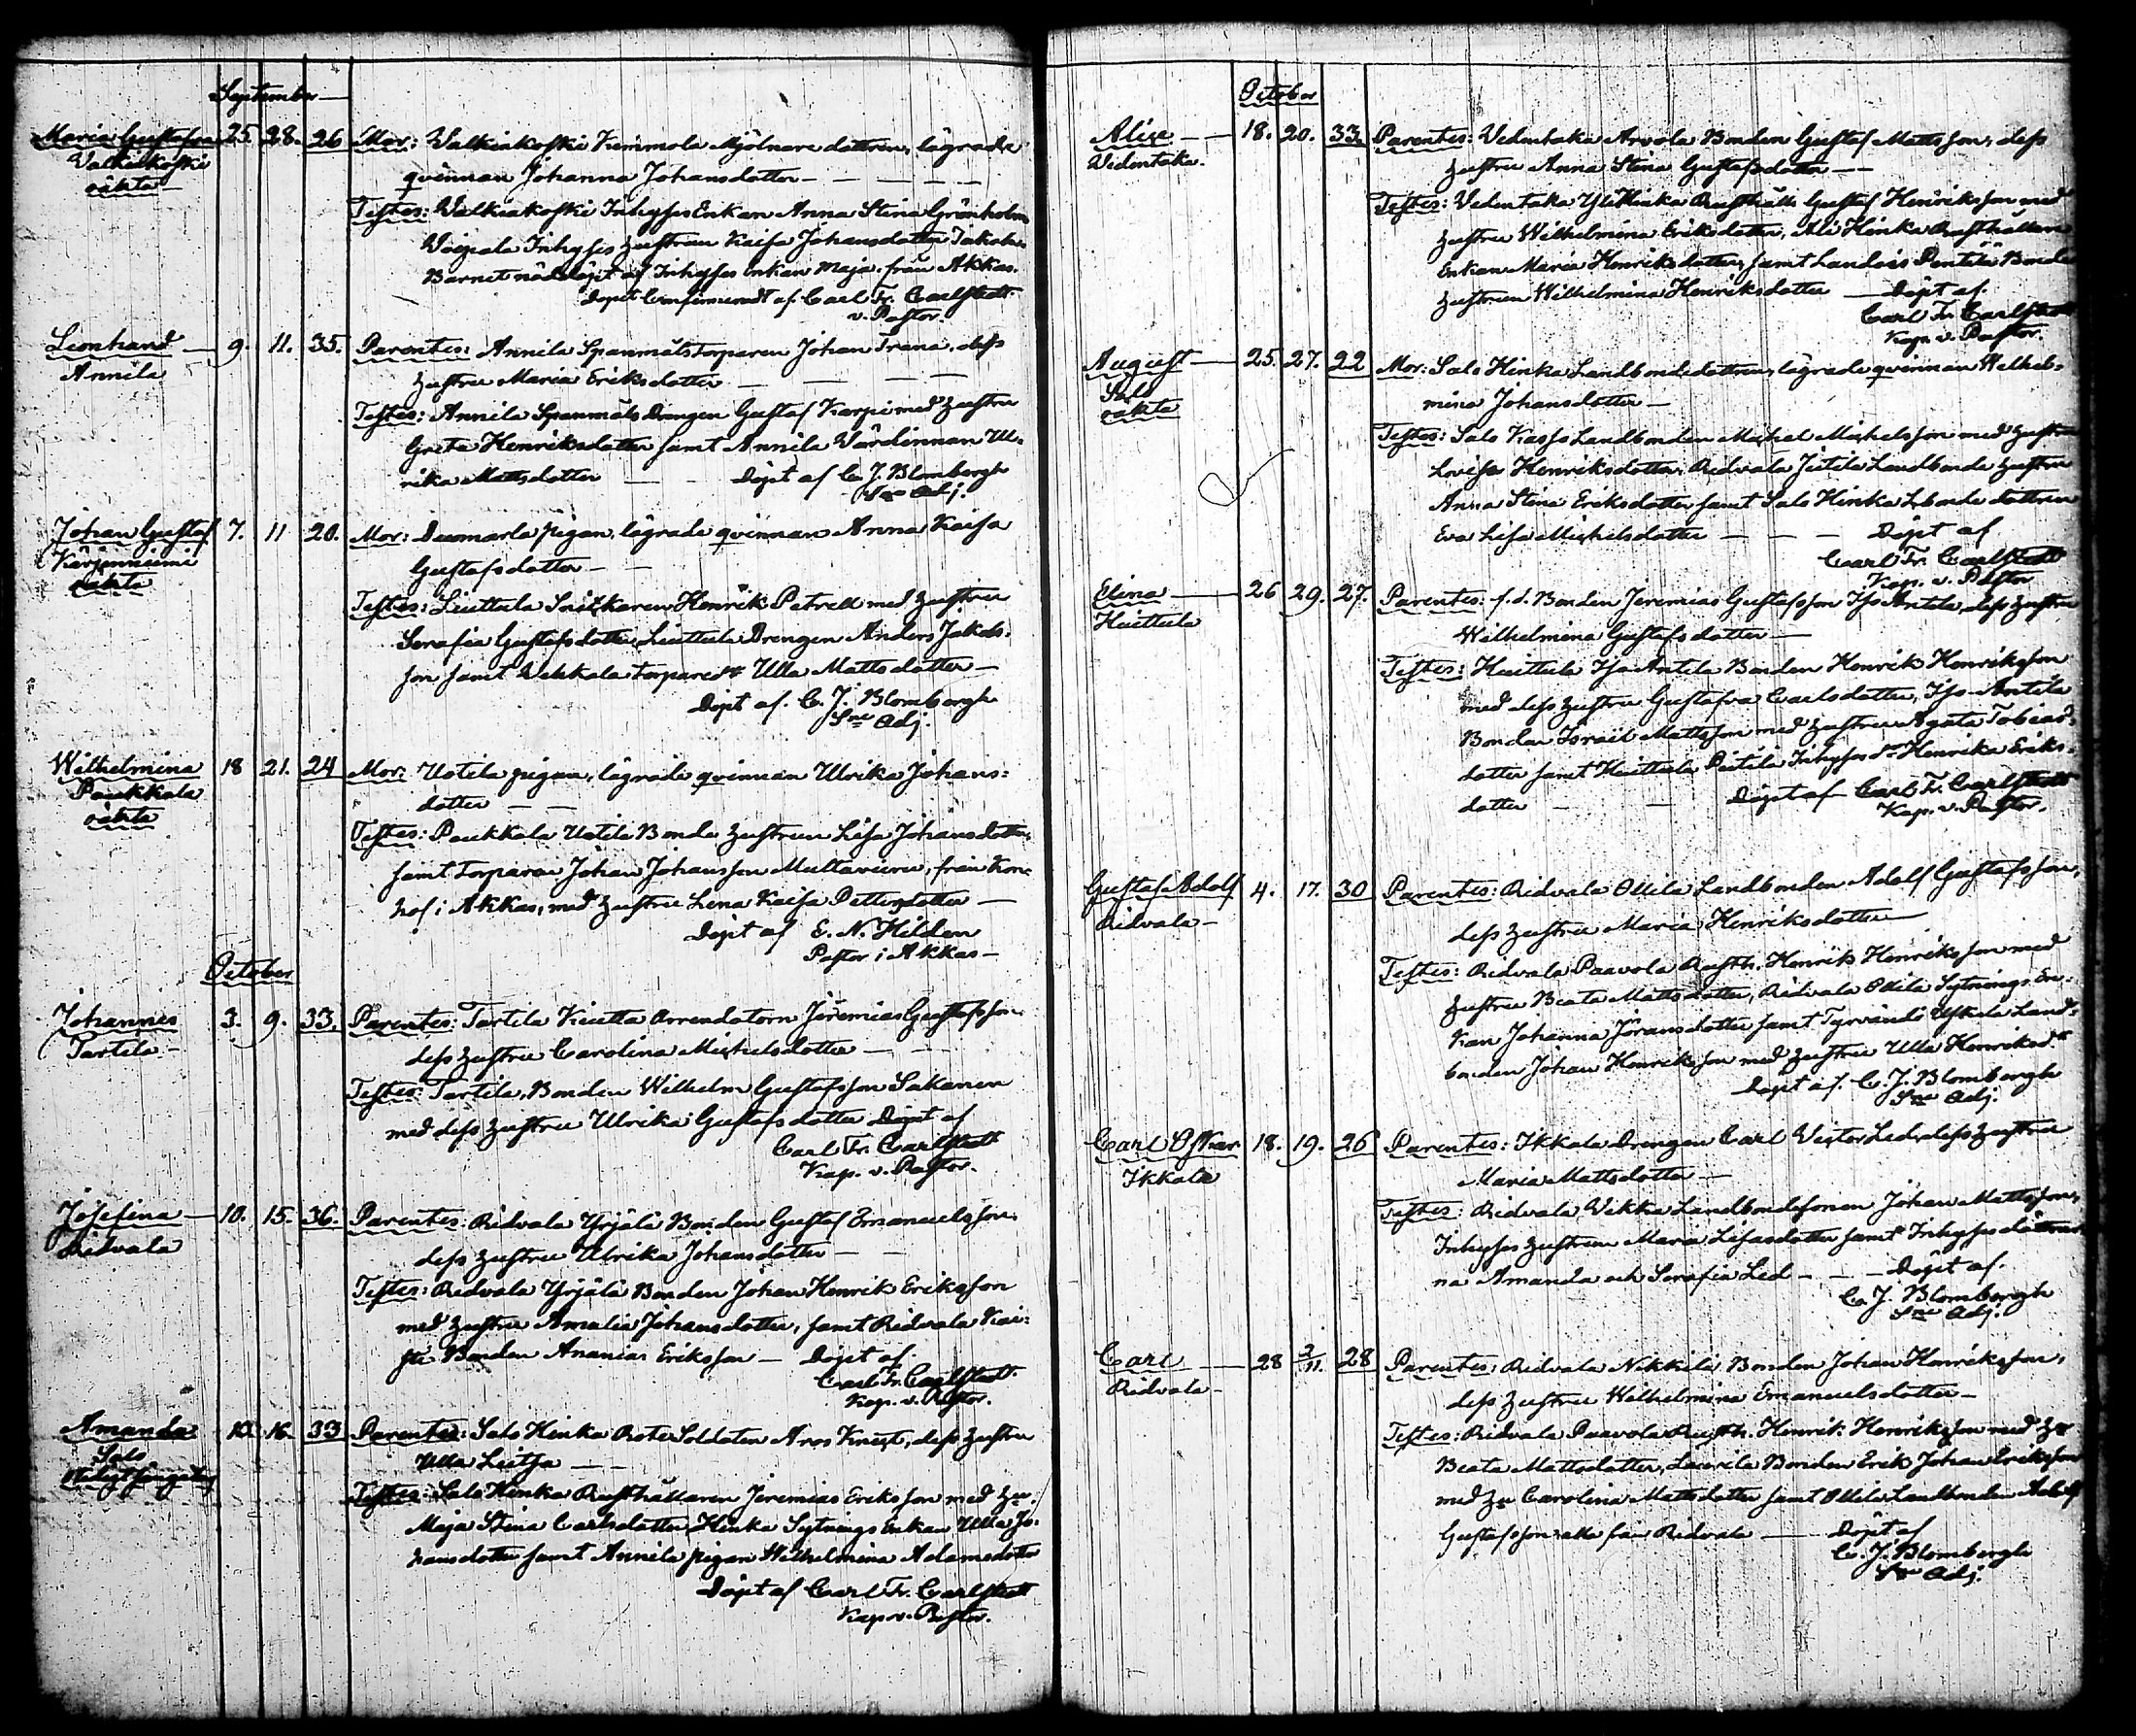 September
Maria Gustafson 25. 28. 26 Mor: Walkiakoski Kimmola Mjölnare dottren, lägrade
Walkiakoski qvinnan Johanna Johansdotter
oäkta
Testes: Walkiakoski Inhyses Enkan Anna Stina Grönholm
Woipala Inhyses hustrun Kaisa Johansdotter
Barnet nöddöpt af Inhyses enkan Maja från Akkas.
Dopet Confirmeradt af Carl Fr. Carlstedt
v. Pastor.
Leonhard 9. 11. 35. Parentes: Annila Spanmåls torparen Johan Trana, dess
Annila hustru Maria Eriksdotter
Testes: Annila Spanmåls Drengen Gustaf Karpi med hustru
Greta Henriksdotter samt Annila Värdinnan Ul-
rika Mattsdotter Döpt af C. J. Blombergh
Sne Adj.
Johan Gustaf 7. 11 20. Mor: Duomarla pigan, lägrade qvinnan Anna Kaisa
Kärjenniemi Gustafsdotter
oäkta
Testes: Liuttula Snickaren Henrik Petrell med hustru
Serafia Gustafsdotter, Liuttula Drengen Anders Jakobs-
son samt Wekkala torpare dr Ulla Mattsdotter
Döpt af. C. J. Blombergh
Sne Adj.
Wilhelmina 18 21. 24 Mor: Uotila pigan, lägrade qvinnan Ulrika Johans:
Paukkala dotter
oäkta
Testes: Paukkala Uotila Bonde hustrun Lisa Johansdotter,
samt torparen Johan Johansson Multavieru, från Kon-
hof i Akkas, med hustru Lena Kaisa Pettersdotter
Döpt af E. N. Hilden
Pastor i Akkas
October
Johannes 3. 9. 33. Parentes: Tartila Kiutta Arrendatorn Jeremias Gustafsson
Tartila dess hustru Carolina Michelsdotter
Testes: Tartila, Bonden Wilhelm Gustafsson Sakanen
med dess hustru Ulrika Gustafsdotter Döpt af
Carl Fr. Carlstedt
Kap. v. Pastor.
Josefina 10. 15. 36. Parentes: Ridvala Yrjälä Bonden Gustaf Emanuelsson,
Ridvala dess hustru Ulrika Johansdotter
Testes: Ridvala Yrjälä Bonden Johan Henrik Eriksson
med hustru Amalia Johansdotter, samt Ridvala Kai-
sti Bonden Ananias Eriksson Döpt af
Carl Fr. Carlstedt
Kap. v. Pastor.
Amanda 10. 16. 33 Parentes: Salo Hinka Rote Soldaten Aros Knest, dess hustru
Salo Ulla Leitsa
Testes: Salo Hinka Rusthållaren Jeremias Eriksson med hu.
Maja Stina Carlsdotter, Hinka Sytnings Enkan Ulla Jo-
hansdotter samt Annila pigan Wilhelmina Adamsdotter
Döpt af Carl Fr. Carlstedt
Kap. v. Pastor.
October
Alise 18. 20. 33. Parentes: Vedentaka Arvola Bonden Gustaf Mattsson, dess
Widentaka. hustru Anna Stina Gustafsdotter
Testes: Vedentaka Yli Hinka Rusthåll. Gustaf Henriksson med
hustru Wilhelmina Eriksdotter, Ali Hinka Rusthållare
Enkan Maria Henriksdotter, samt Landois Pentilä Bonde
hustrun Wilhelmina Henriksdotter Döpt af
Carl Fr. Carlstedt
Kap. v. Pastor.
August 25. 27. 22 Mor: Salo Hinka Landbonde dottren, lägrade qvinnan Wilhel-
Salo mina Johansdotter
oäkta
Testes: Salo Kasso Landbonden Michel Michelsson med hustru
Lovisa Henriksdotter, Ridvala Jutila Landbonde hustru
Anna Stina Eriksdotter samt Salo Hinka Lbonde dottren
Eva Lisa Michelsdotter Döpt af
Carl Fr. Carlstedt
Kap. v. Pastor
Elina 26 29. 27. Parentes: f. d. Bonden Jeremias Gustafsson Iso Antila, dess hustru
Huittula Wilhelmina Gustafsdotter
Testes: Huittula Iso Antila Bonden Henrik Henriksson
med dess hustru Gustafva Carlsdotter, Iso-Antila
Bonden Israel Mattsson med hustru Agata Tobias-
dotter samt Huittula Inhyses dr Henrika Eriks-
dotter Döpt af Carl Fr. Carlstedt
Kap. v. Pastor.
Gustaf Adolf 4. 17. 30 Parentes: Ridvala Ollila Landbonden Adolf Gustafsson,
Ridvala dess hustru Maria Henriksdotter
Testes: Ridvala Paavola Rusth. Henrik Henriksson med
hustru Beata Mattsdotter, Ridvala Ollila Sytnings En-
kan Johanna Jöransdotter samt Tyrvändö Uskila Land-
bonden Johan Henriksson med hustru Ulla Henriksdr
Döpt af C. J. Blombergh
Sne Adj.
Carl Oskar 18. 19. 26 Parentes: Ikkala Drengen Carl Victor Led, dess hustru
Ikkala Maria Mattsdotter
Testes: Ridvala Wekka Landbondesonen Johan Mattsson,
Inhyses hustrun Maria Lisasdotter samt Inhyses döttrar-
na Amanda och Serafia Led Döpt af
C. J. Blombergh
Sne Adj.
Carl 28 2/11. 28 Parentes: Ridvala Nikkilä Bonden Johan Henriksson,
Ridvala dess hustru Wilhelmina Emanuelsdotter
Testes: Ridvala Paavola Rusth. Henrik Henriksson med hu
Beata Mattsdotter, Laurila Bonden Erik Johan Eriksson
med hu Carolina Mattsdotter samt Ollila Landbonden Adolf
Gustafsson alla från Ridvala Döpt af
C. J. Blombergh
Sne Adj.